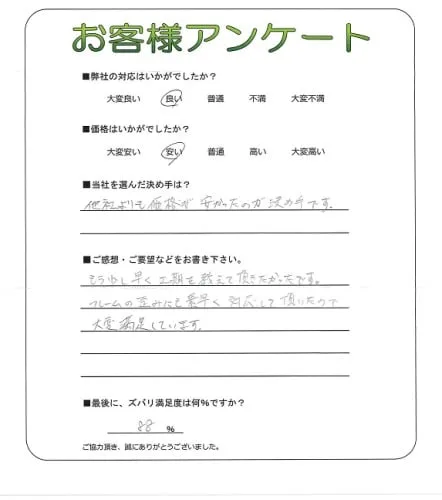 お客様アンケート
■弊社の対応はいかがでしたか？
大変良い 良い 普通 不満 大変不満
■価格はいかがでしたか？
大変安い 安い 普通 高い 大変高い
■当社を選んだ決め手は？
他社よりも価格が安かったのが決め手です。
■ご感想・ご要望などをお書き下さい。
もう少し早く工期を教えて頂きたかったです。
フレームの歪みにも素早く対応して頂いたので
大変満足しています。
■最後に、ズバリ満足度は何％ですか？
88 ％
ご協力頂き、誠にありがとうございました。